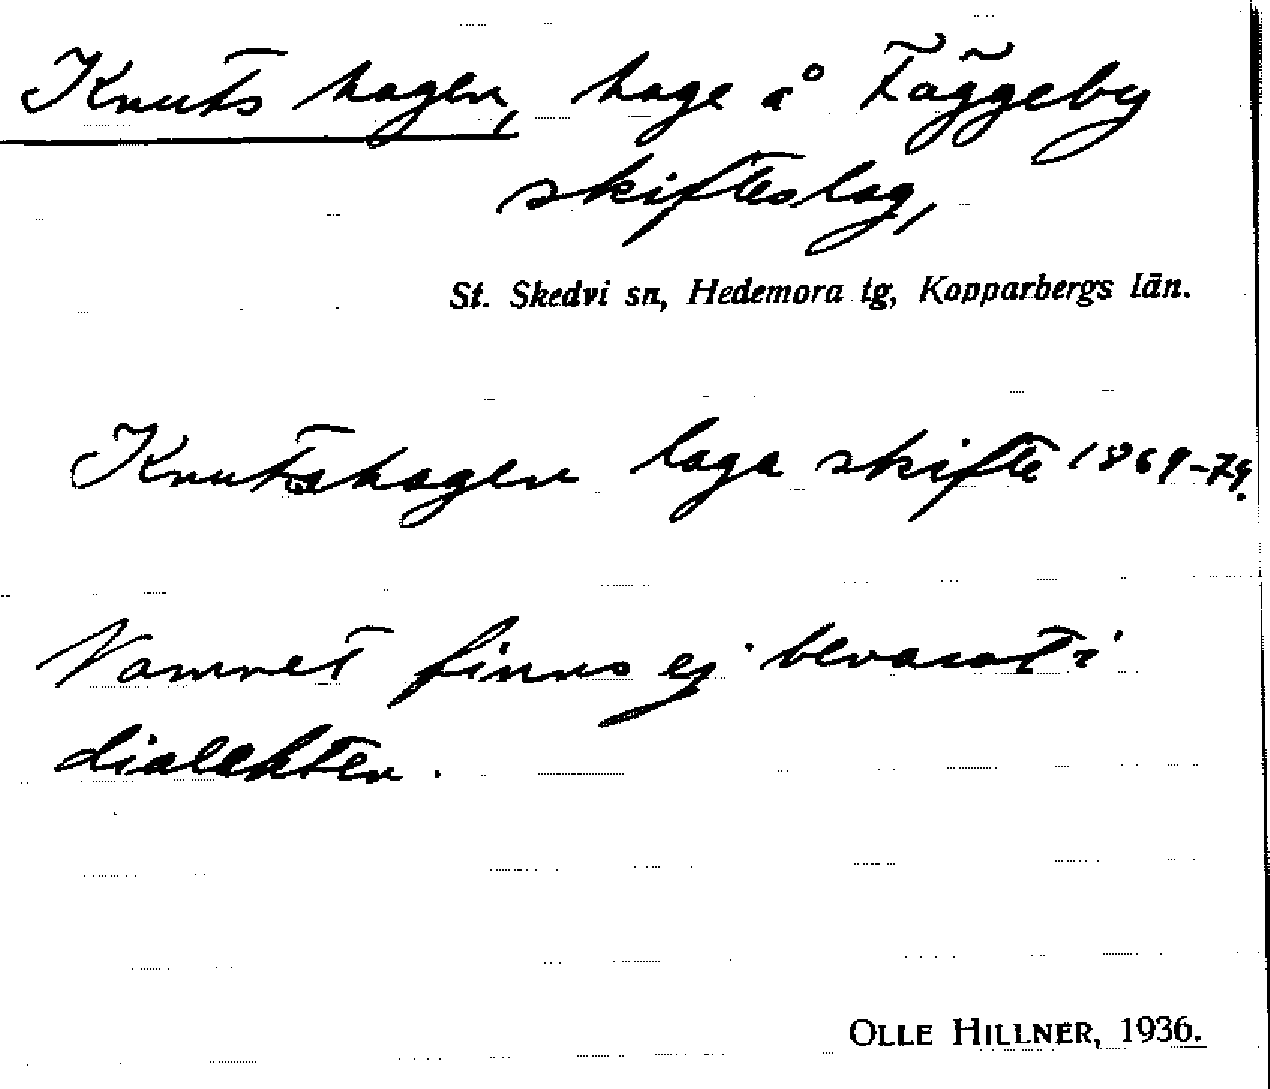 Knuts hagen, hage å Fäggeby
skifteslag,
St. Skedvi sn, Hedemora tg, Kopparbergs län.
Knutshagen laga skifte 1869-79.
Namnet finns ej bevarat i
dialekten.
OLLE HILLNER, 1936.